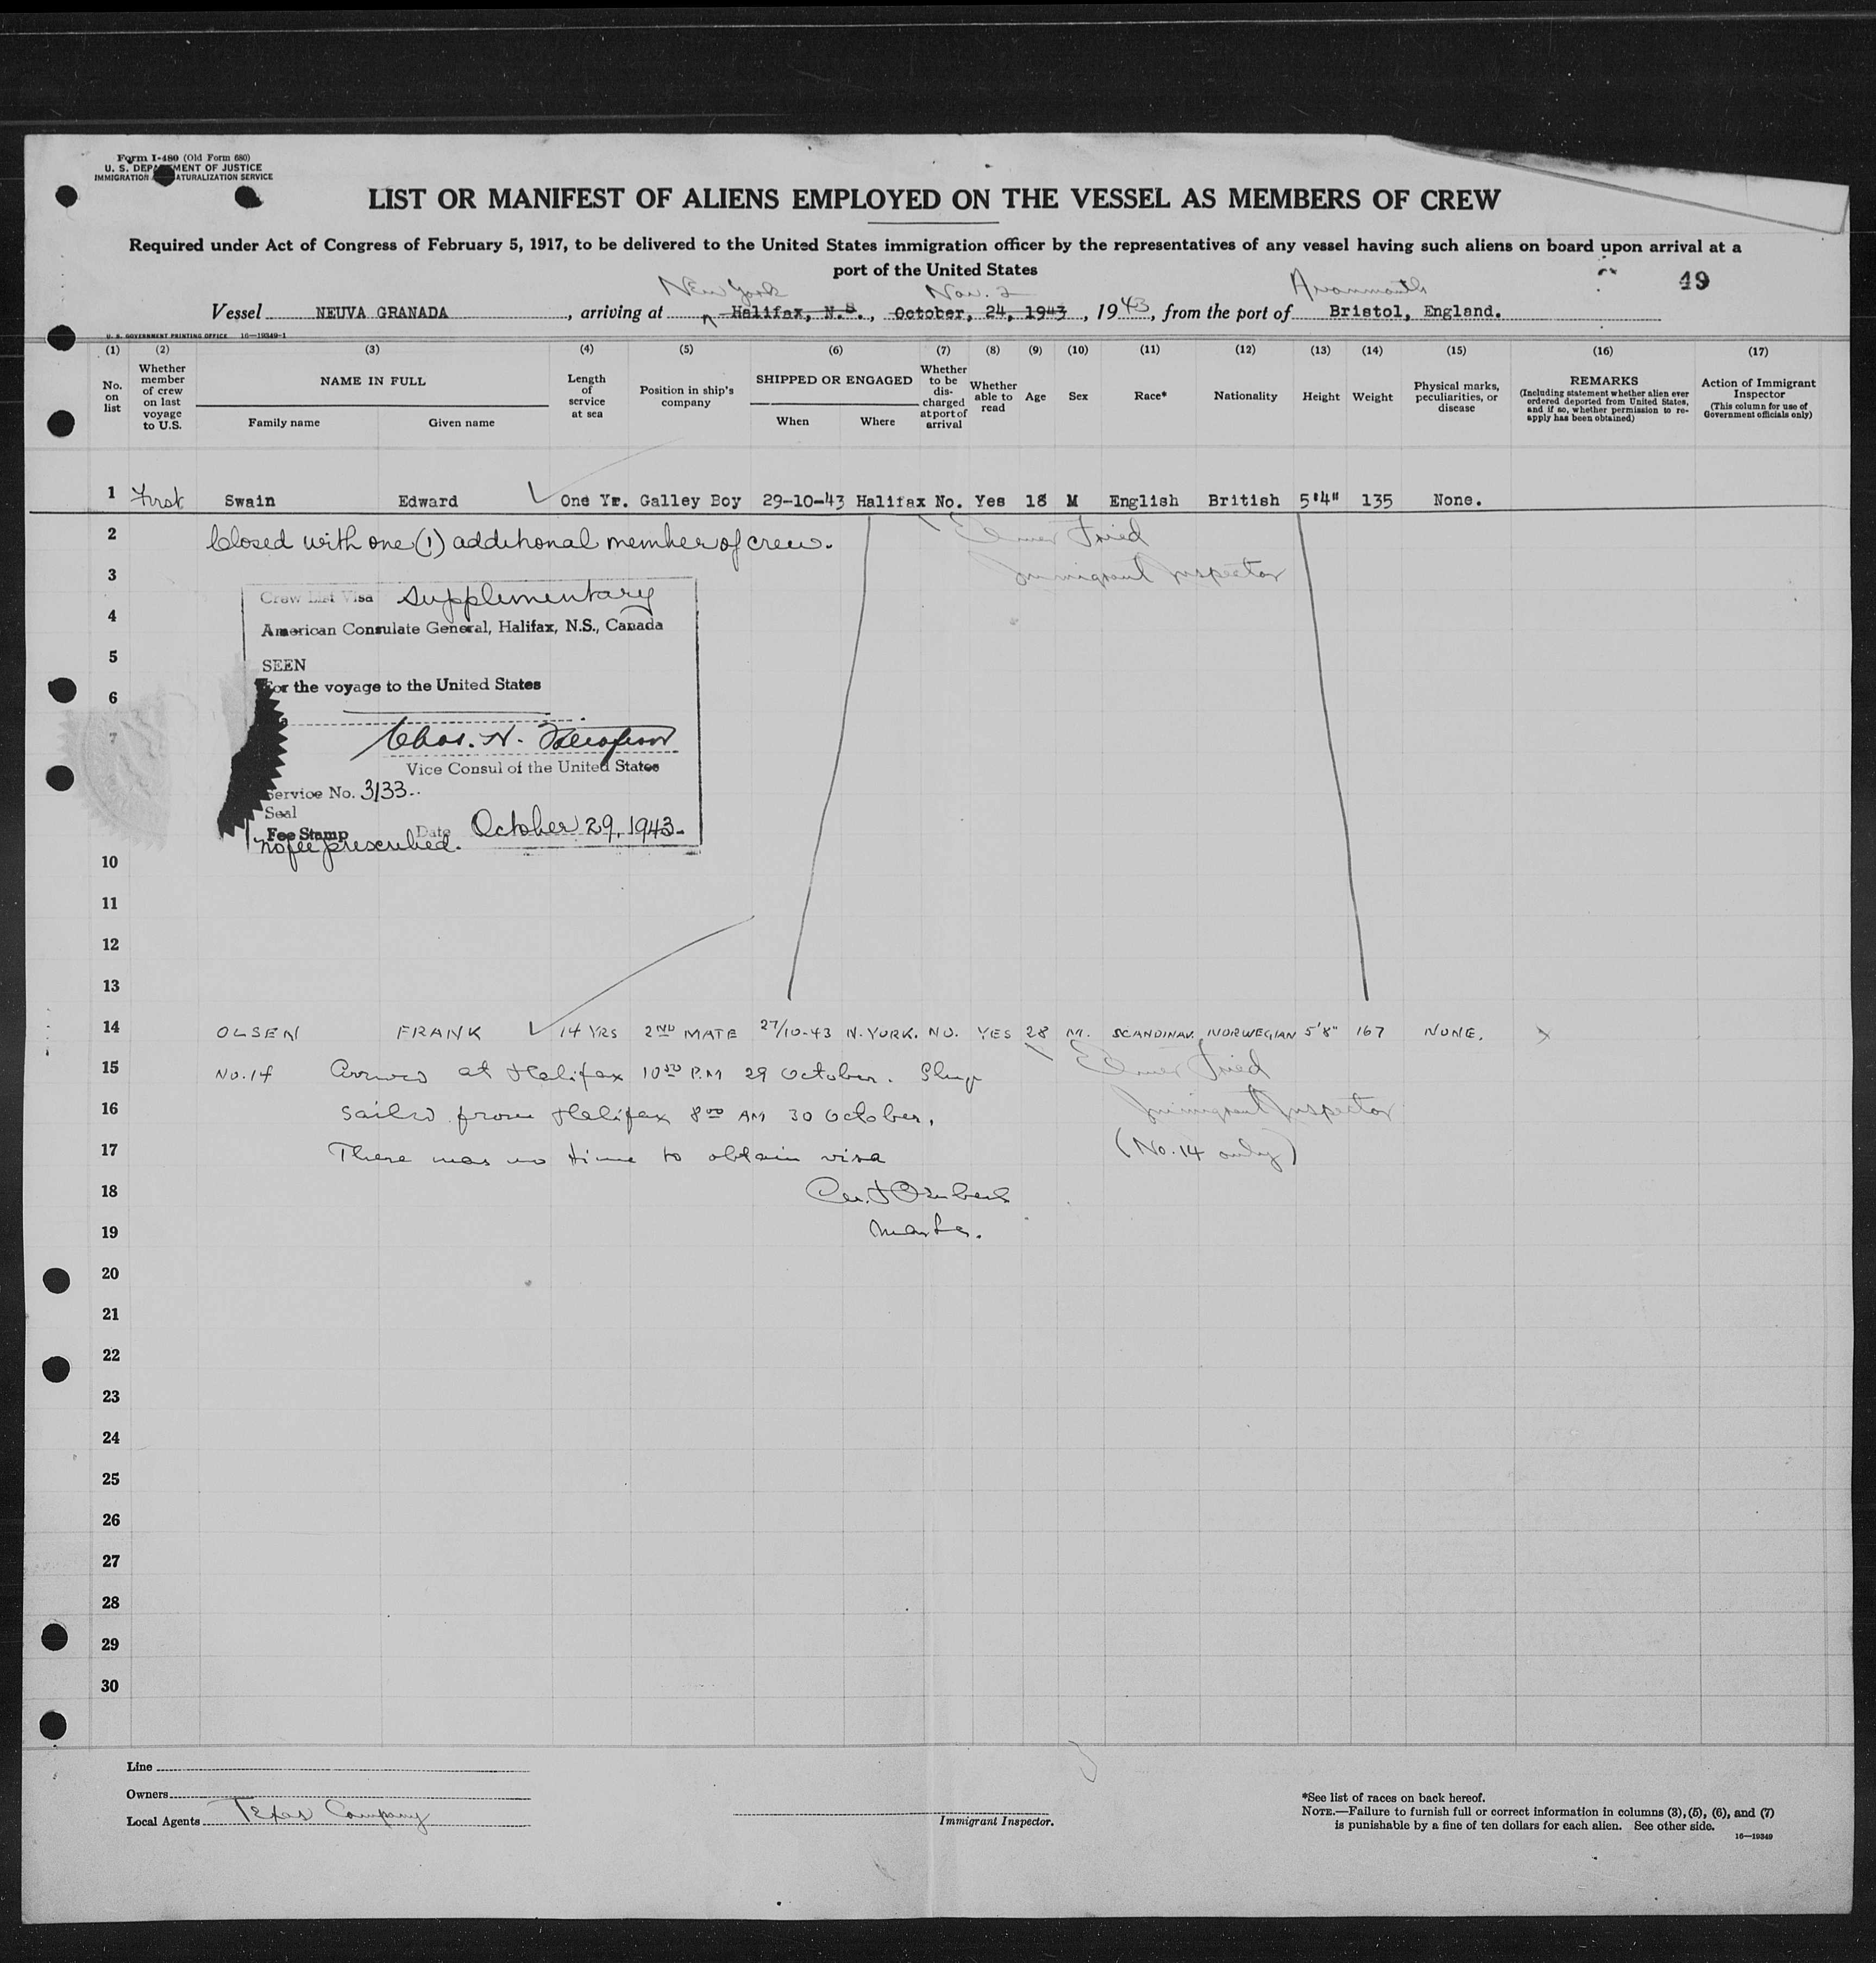 Form I-480 (Old Form 680)
U. S. DEPARTMENT OF JUSTICE
IMMIGRATION NATURALIZATION SERVICE
LIST OR MANIFEST OF ALIENS EMPLOYED ON THE VESSEL AS MEMBERS OF CREW
Required under Act of Congress of February 5, 1917, to be delivered to the United States immigration officer by the representatives of any vessel having such aliens on board upon arrival at a
port of the United States
49
New York Nov. 2 Avonmouth
Vessel NEUVA GRANADA, arriving at Halifax, N.S., October, 24, 1943, 1943, from the port of Bristol, England.
U. S. GOVERNMENT PRINTING OFFICE 16—19349-1
(1) (2) (3) (4) (5) (6) (7) (8) (9) (10) (11) (12) (13) (14) (15) (16) (17)
No. on list
Whether member of crew on last voyage to U.S.
NAME IN FULL
Family name Given name
Length of service at sea
Position in ship's company
SHIPPED OR ENGAGED
When Where
Whether to be discharged at port of arrival
Whether able to read
Age
Sex
Race*
Nationality
Height
Weight
Physical marks, peculiarities, or disease
REMARKS
(Including statement whether alien ever ordered deported from United States, and if so, whether permission to reapply has been obtained)
Action of Immigrant Inspector
(This column for use of Government officials only)
1 First Swain Edward One Yr. Galley Boy 29-10-43 Halifax No. Yes 18 M English British 5'4" 135 None.
2 Closed with one (1) additional member of crew. Elmer Fried
3 Immigrant Inspector
Crew List Visa Supplementary
4
American Consulate General, Halifax, N.S., Canada
5
SEEN
For the voyage to the United States
6
7
Chas. N.
Vice Consul of the United States
Service No. 3133
Seal
Fee Stamp Date October 29, 1943
No fee prescribed.
10
11
12
13
14 OLSEN FRANK 14 YRS 2ND MATE 27/10-43 N. YORK. NO. YES 28 M. SCANDINAV. NORWEGIAN 5'8" 167 NONE. x
15 No. 14 Arrived at Halifax 10 P.M 29 October. Ship Elmer Fried
16 sailed from Halifax 8 00 AM 30 October. Immigrant Inspector
17 There was no time to obtain visa (No. 14 only)
18
19 Master.
20
21
22
23
24
25
26
27
28
29
30
Line
Owners
Local Agents Texas Company
Immigrant Inspector.
*See list of races on back hereof.
NOTE.—Failure to furnish full or correct information in columns (3), (5), (6), and (7)
is punishable by a fine of ten dollars for each alien. See other side.
16—19349